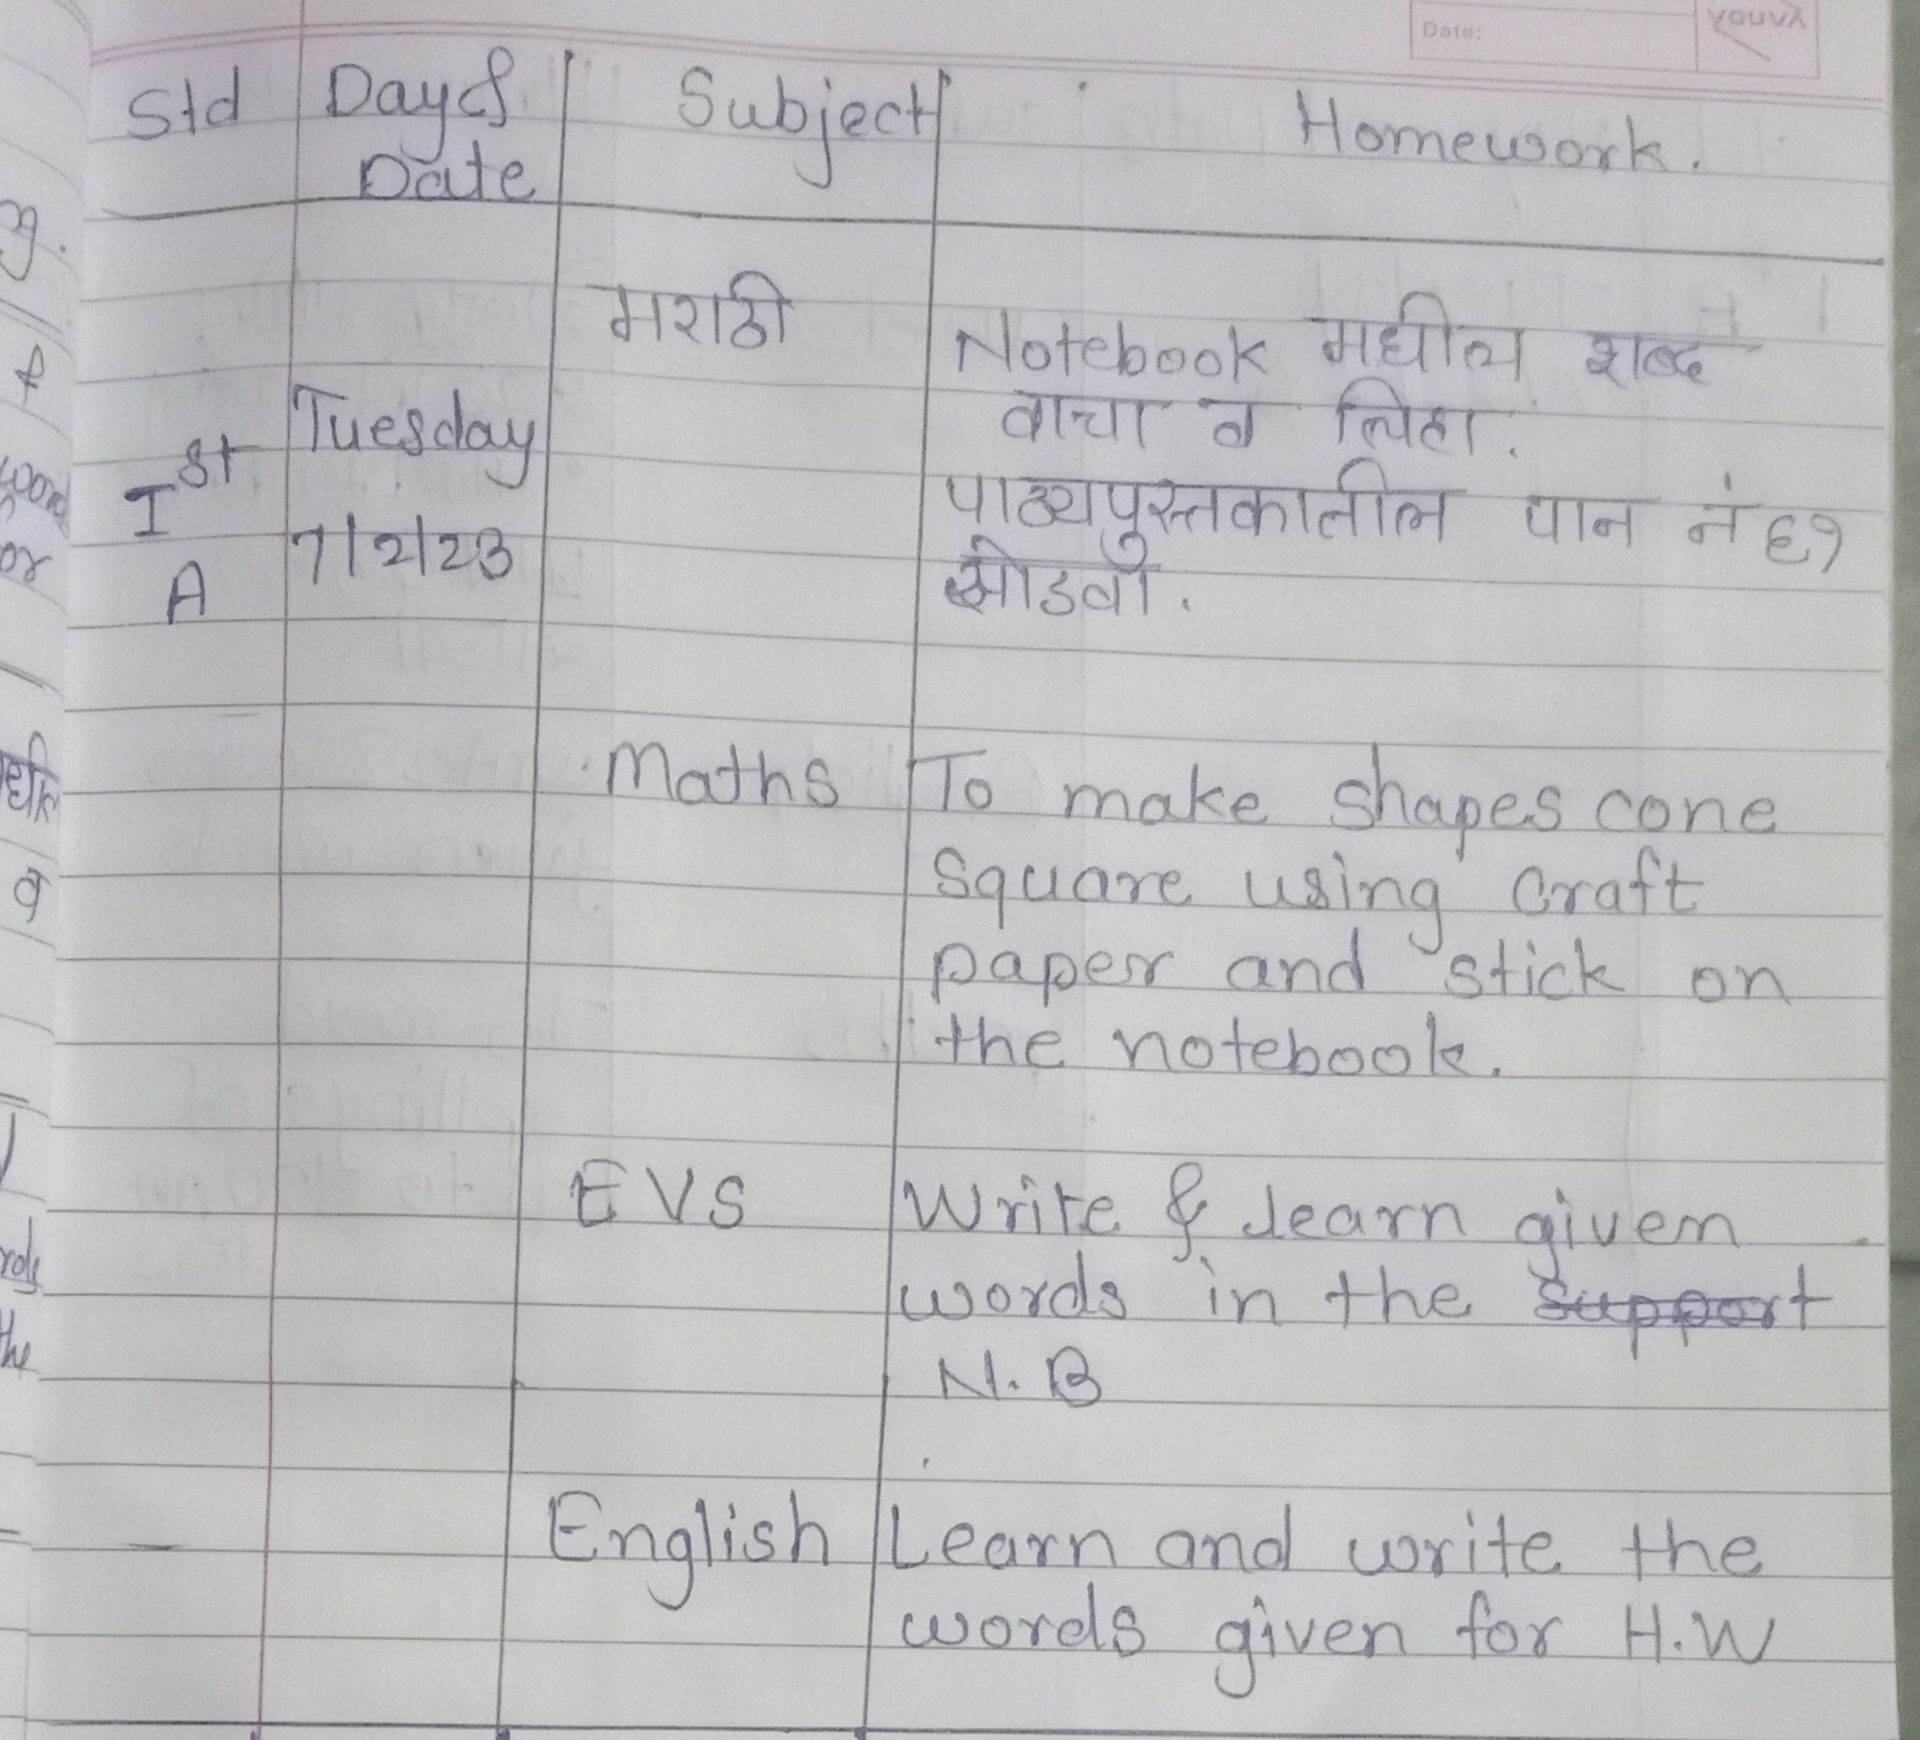 Date:
youva
Std Day & Subject Homework.
Date
मराठी Notebook मधील शब्द
वाचा व लिहा.
Tuesday
Ist पाठ्यपुस्तकातील पान नं ६१
7/2/23 सोडवा.
A
Maths To make shapes cone
Square using craft
paper and stick on
the notebook.
EVS Write & learn given
words in the support
N.B
English Learn and write the
words given for H.W